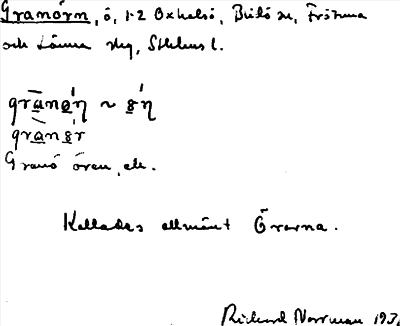 Granörn, ö, 1-2 Oxhalsö, Bridö m, Frötuna
och Länna skg, Sthlms l.
grànǿη ~ ȣ́η
grànȣ́r
Granö ören, ek.
Kallades allmänt Örarna.
Richard Norrman 193